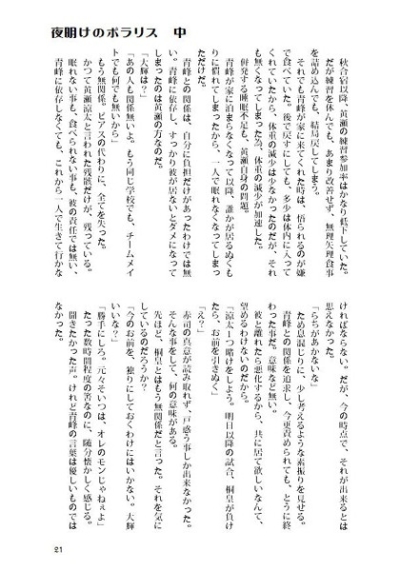 夜明けのポラリス　中
秋合宿以降、黄瀬の練習参加率はかなり低下していた。
だが練習を休んでも、あまり改善せず、無理矢理食事
を詰め込んでも、結局戻してしまう。
それでも青峰が家に来てくれた時は、悟られるのが嫌
で食べていた。後で戻すにしても、多少は体内に入って
くれていたから、体重の減少は少なかったのだが、それ
も無くなってしまった為、体重の減少が加速した。
併発する睡眠不足も、黄瀬自身の問題。
青峰が家に泊まらなくなって以降、誰かが居るぬくも
りに慣れてしまったから、一人で眠れなくなってしまっ
ただけだ。
青峰との関係は、自分に負担だけがあったわけでは無
い。青峰に依存し、すっかり彼が居ないとダメになって
しまったのは黄瀬の方なのだ。
「大輝は？」
「あの人も関係無いよ。もう同じ学校でも、チームメイ
トでも何でも無いから」
もう無関係。ピアスの代わりに、全てを失った。
かつて黄瀬涼太と言われた残骸だけが、残っている。
眠れない事も、食べられない事も、彼の責任では無い。
青峰に依存しなくても、これから一人で生きて行かな
ければならない。だが、今の時点で、それが出来るとは
思えなかった。
「らちがあかないな」
ため息混じりに、少し考えるような素振りを見せる。
青峰との関係を追求し、今更責められても、とうに終
わった事だ。意味など無い。
彼と離れたら悪化するから、共に居て欲しいなんて、
望めるわけないのだから。
「涼太一つ賭けをしよう。明日以降の試合、桐皇が負け
たら、お前を引きぬく」
「え？」
赤司の真意が読み取れず、戸惑う事しか出来なかった。
そんな事をして、何の意味がある。
先ほど、桐皇とはもう無関係だと言った。それを気に
しているのだろうか？
「今のお前を、独りにしておくわけにはいかない。大輝
いいな？」
「勝手にしろ。元々そいつは、オレのモンじゃねぇよ」
たった数時間程度の筈なのに、随分懐かしく感じる。
聞きたかった声。けれど青峰の言葉は優しいものでは
なかった。
21